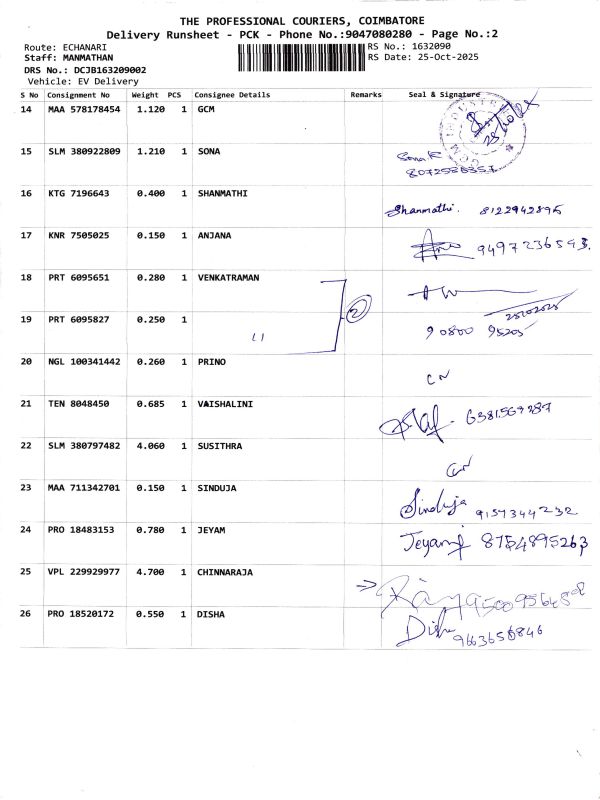 THE PROFESSIONAL COURIERS, COIMBATORE
Delivery Runsheet - PCK - Phone No.:9047080280 - Page No.:2
Route: ECHANARI
RS No.: 1632090
Staff: MANMATHAN
RS Date: 25-Oct-2025
DRS No.: DCJB163209002
Vehicle: EV Delivery
S No Consignment No Weight PCS Consignee Details Remarks Seal & Signature
14 MAA 578178454 1.120 1 GCM
15 SLM 380922809 1.210 1 SONA Sona K
8072558357
16 KTG 7196643 0.400 1 SHANMATHI
Shanmathi. 8122942895
17 KNR 7505025 0.150 1 ANJANA
9497236543.
18 PRT 6095651 0.280 1 VENKATRAMAN
25/10/2025
19 PRT 6095827 0.250 1 2
90800 95205
20 NGL 100341442 0.260 1 PRINO
CN
21 TEN 8048450 0.685 1 VAISHALINI
6381569287
22 SLM 380797482 4.060 1 SUSITHRA
CN
23 MAA 711342701 0.150 1 SINDUJA
Sinduja 9157344232
24 PRO 18483153 0.780 1 JEYAM
Jeyam 8754895263
25 VPL 229929977 4.700 1 CHINNARAJA
26 PRO 18520172 0.550 1 DISHA
Disha 9663656846